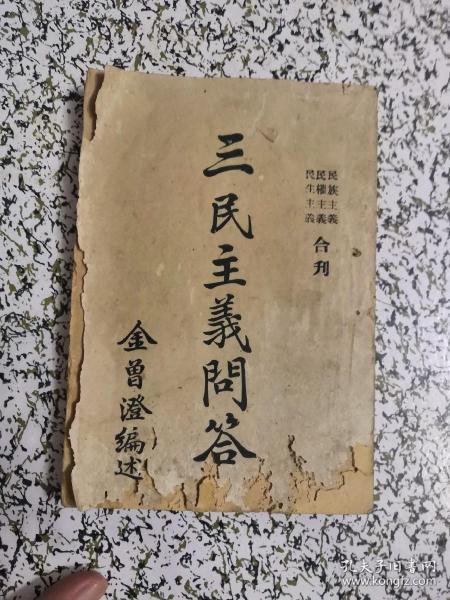 民族主義
民權主義
民生主義
合刊
三民主義問答
金曾澄編述
孔夫子旧书网
www.kongfz.com